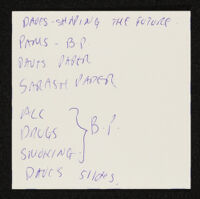 DAVES - SHAPING THE FUTURE.
PAMS - B.P.
DAVES PAPER
SARASH PAPER
ALC
DRUGS } B.P.
SMOKING
DAVES Slides.